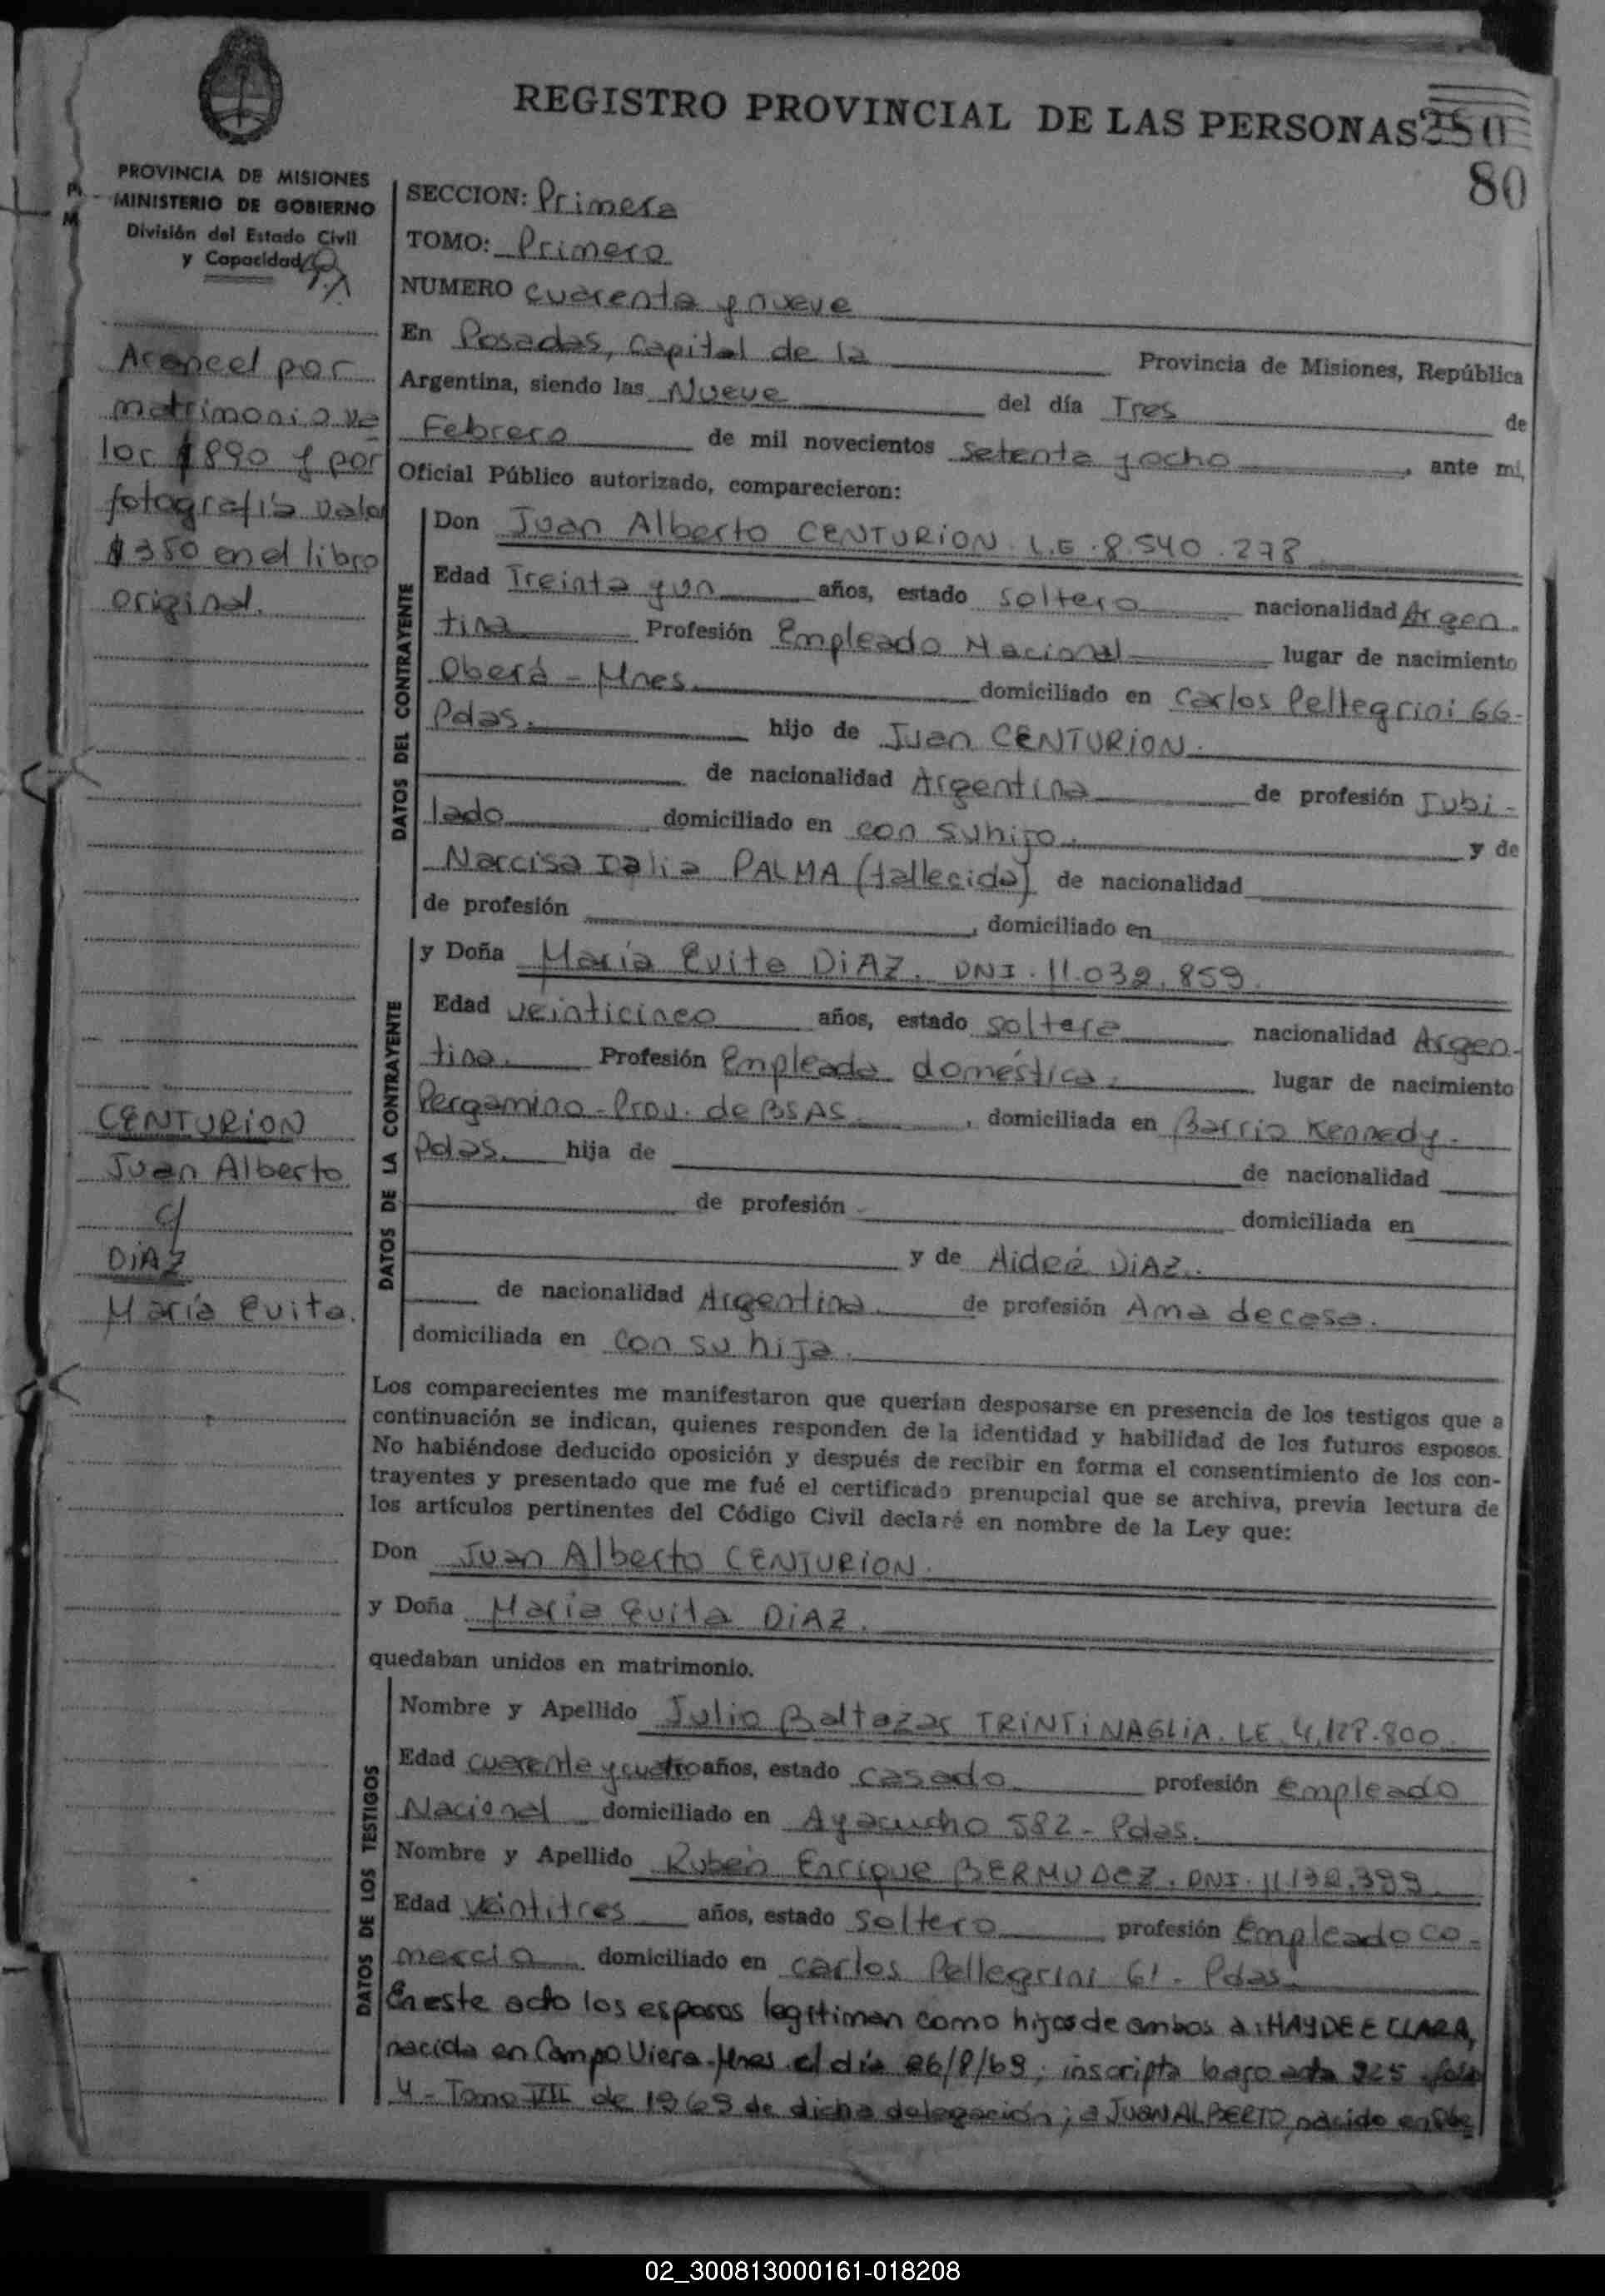 REGISTRO PROVINCIAL DE LAS PERSONAS
250
80
PROVINCIA DE MISIONES
MINISTERIO DE GOBIERNO
División del Estado Civil
y Capacidad
Arancel por
matrimonio va
lor $890 y por
fotografía valor
$350 en el libro
original.
CENTURION
Juan Alberto
c/
DiAZ
María Evita.
SECCION: Primera
TOMO: Primero
NUMERO cuarenta y nueve
En Posadas, capital de la Provincia de Misiones, República
Argentina, siendo las Nueve del día Tres de
Febrero de mil novecientos setenta y ocho, ante mí,
Oficial Público autorizado, comparecieron:
DATOS DEL CONTRAYENTE
Don Juan Alberto CENTURION. L.E. 8.540.278
Edad Treinta y un años, estado soltero nacionalidad Argen-
tina Profesión Empleado Nacional lugar de nacimiento
Oberá - Mnes. domiciliado en Carlos Pellegrini 66-
Pdas. hijo de Juan CENTURION.
de nacionalidad Argentina de profesión Jubi-
lado domiciliado en con su hijo. y de
Narcisa Dalia PALMA (fallecida) de nacionalidad
de profesión , domiciliado en
DATOS DE LA CONTRAYENTE
y Doña María Evita DiAZ. DNI. 11.032.859.
Edad veinticinco años, estado soltera nacionalidad Argen-
tina. Profesión Empleada doméstica. lugar de nacimiento
Pergamino - Prov. de BSAS. , domiciliada en Barrio Kennedy.
Pdas. hija de de nacionalidad
de profesión domiciliada en
y de Aideé DiAZ.
de nacionalidad Argentina. de profesión Ama de casa.
domiciliada en con su hija.
Los comparecientes me manifestaron que querían desposarse en presencia de los testigos que a
continuación se indican, quienes responden de la identidad y habilidad de los futuros esposos.
No habiéndose deducido oposición y después de recibir en forma el consentimiento de los con-
trayentes y presentado que me fué el certificado prenupcial que se archiva, previa lectura de
los artículos pertinentes del Código Civil declaré en nombre de la Ley que:
Don Juan Alberto CENTURION.
y Doña María Evita DiAZ.
quedaban unidos en matrimonio.
DATOS DE LOS TESTIGOS
Nombre y Apellido Julio Baltazar TRiNTiNAGLiA. LE. 4.128.800
Edad cuarenta y cuatro años, estado casado profesión empleado
Nacional domiciliado en Ayacucho 582 - Pdas.
Nombre y Apellido Rubén Enrique BERMUDEZ. DNI. 11.132.399
Edad veintitres años, estado soltero profesión Empleado co-
mercio domiciliado en Carlos Pellegrini 61 - Pdas.
En este acto los esposos legitiman como hijos de ambos a: HAYDEE CLARA,
nacida en Campo Viera - Mnes. el día 26/8/69; inscripta bajo acta 925 folio
4 - Tomo VII de 1969 de dicha delegación; a JUAN ALBERTO, nacido en Obe
02_300813000161-018208